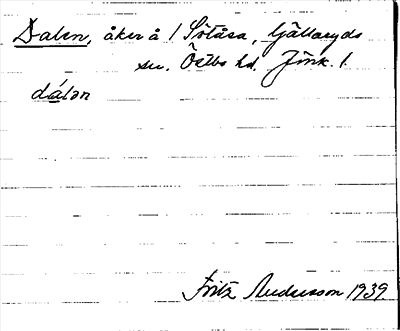 Dalen, åker å 1 Sötåsa, Gällaryds
sn. Östbo hd. Jönk. l.
dálən
Fritz Andersson 1939.